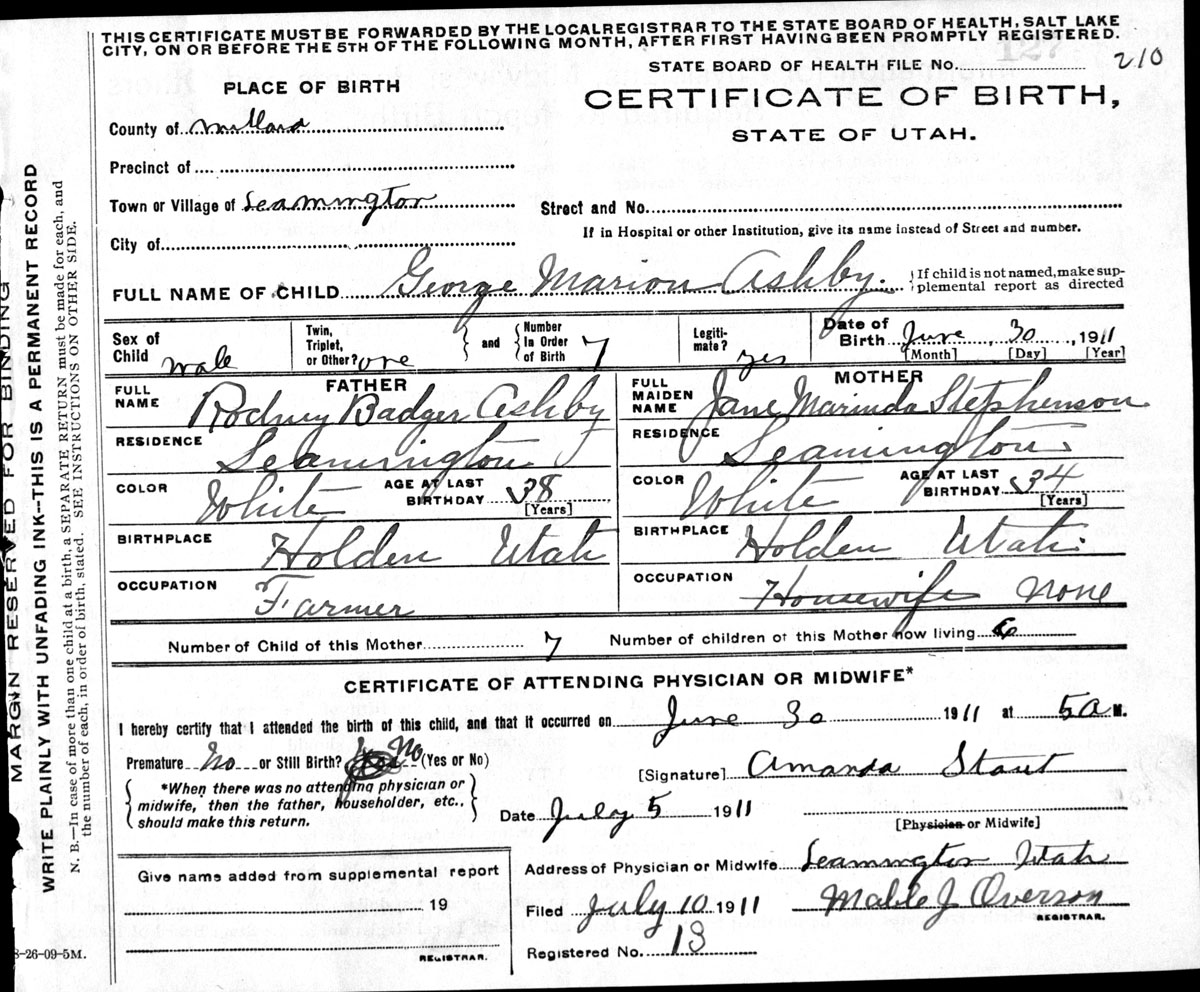 THIS CERTIFICATE MUST BE FORWARDED BY THE LOCALREGISTRAR TO THE STATE BOARD OF HEALTH, SALT LAKE
CITY, ON OR BEFORE THE 5TH OF THE FOLLOWING MONTH, AFTER FIRST HAVING BEEN PROMPTLY REGISTERED.
STATE BOARD OF HEALTH FILE No. 210
PLACE OF BIRTH
CERTIFICATE OF BIRTH,
STATE OF UTAH.
County of Millard
Precinct of
Town or Village of Leamington
Street and No.
City of
If in Hospital or other Institution, give its name instead of Street and number.
FULL NAME OF CHILD George Marion Ashby. If child is not named, make sup-
plemental report as directed
Sex of Child male Twin, Triplet, or Other? one and Number In Order of Birth 7 Legiti- mate? yes Date of Birth June 30, 1911
[Month] [Day] [Year]
FATHER
FULL NAME Rodney Badger Ashby
RESIDENCE Leamington
COLOR White AGE AT LAST BIRTHDAY 38 [Years]
BIRTHPLACE Holden Utah
OCCUPATION Farmer
MOTHER
FULL MAIDEN NAME Jane Marinda Stephenson
RESIDENCE Leamington
COLOR White AGE AT LAST BIRTHDAY 34 [Years]
BIRTHPLACE Holden Utah.
OCCUPATION Housewife none
Number of Child of this Mother 7 Number of children of this Mother now living 6
CERTIFICATE OF ATTENDING PHYSICIAN OR MIDWIFE*
I hereby certify that I attended the birth of this child, and that it occurred on June 30 1911 at 5 a M.
Premature No or Still Birth? No (Yes or No)
[Signature] Amanda Stout
*When there was no attending physician or
midwife, then the father, householder, etc.,
should make this return.
Date July 5 1911
[Physician or Midwife]
Give name added from supplemental report
19
REGISTRAR.
Address of Physician or Midwife Leamington Utah
Filed July 10 1911 Mable J Overson
REGISTRAR.
Registered No. 13
8-26-09-5M.
MARGIN RESERVED FOR BINDING
WRITE PLAINLY WITH UNFADING INK--THIS IS A PERMANENT RECORD
N. B.—In case of more than one child at a birth, a SEPARATE RETURN must be made for each, and
the number of each, in order of birth, stated. SEE INSTRUCTIONS ON OTHER SIDE.